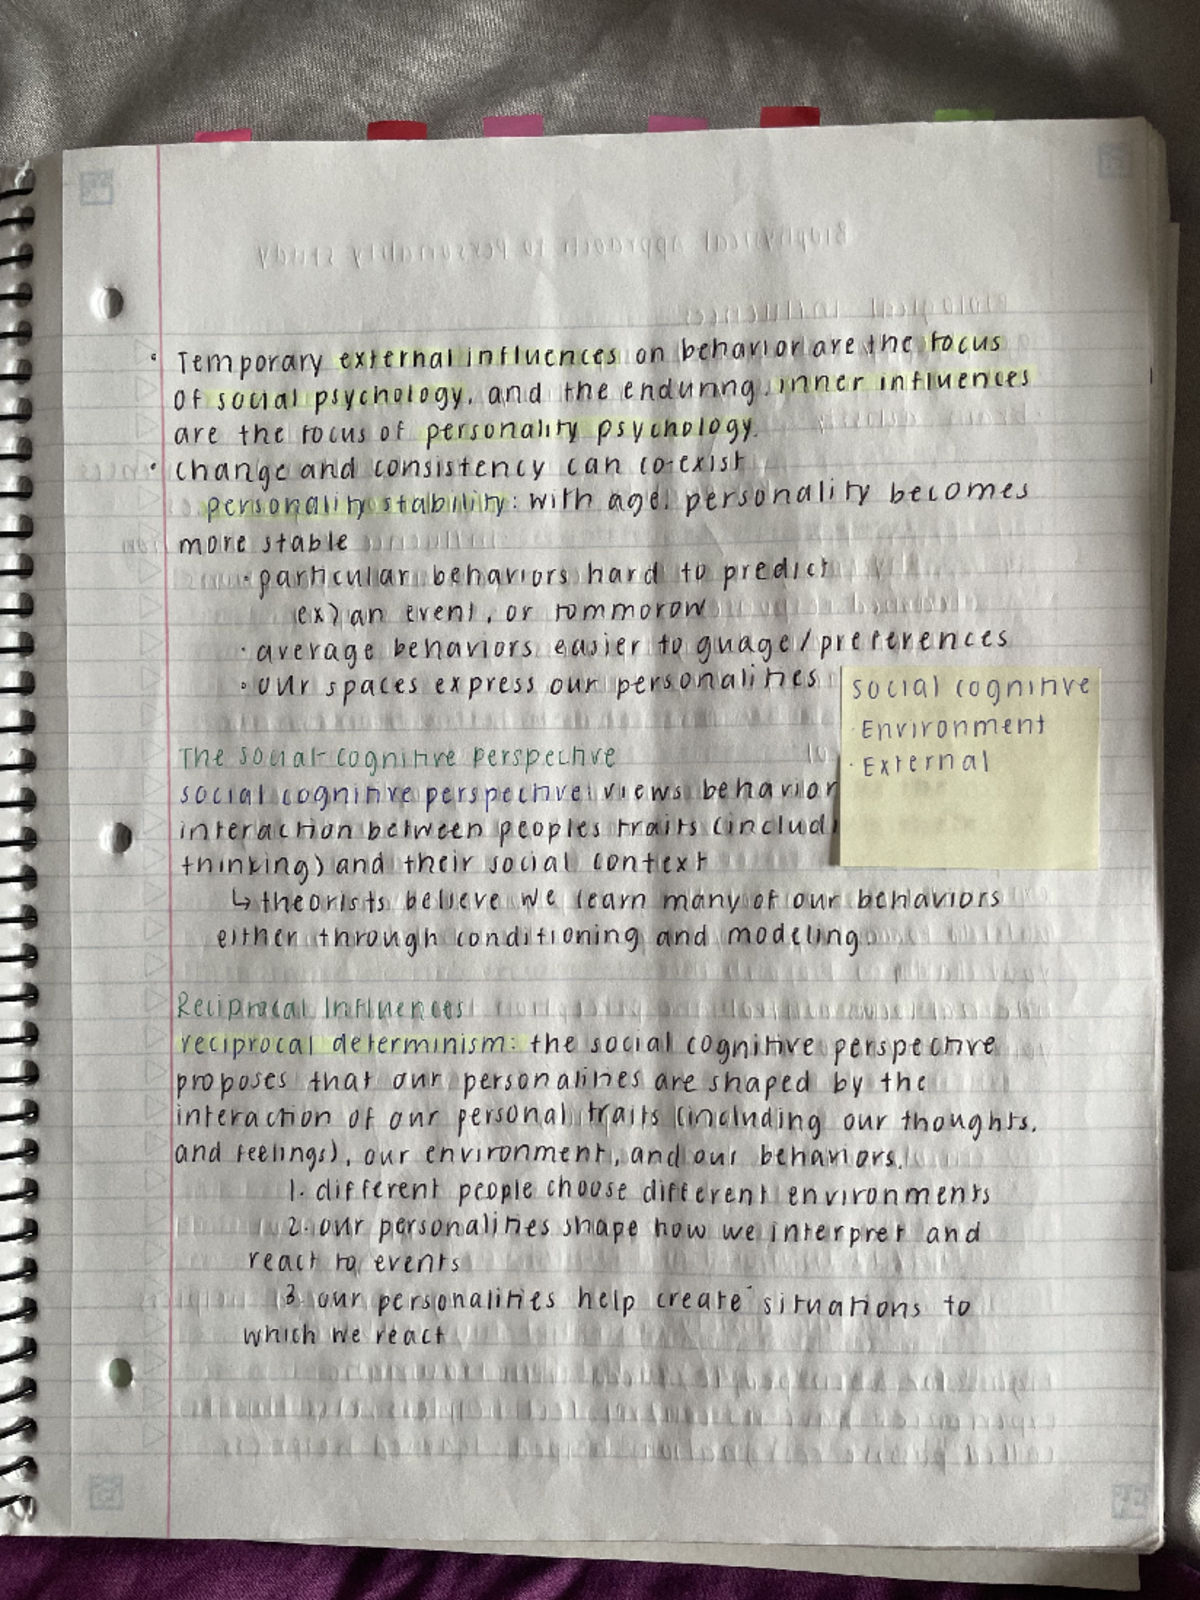 • Temporary external influences on behavior are the focus
of social psychology, and the enduring inner influences
are the focus of personality psychology.
• change and consistency can co-exist
personality stability: with age, personality becomes
more stable
• particular behaviors hard to predict
ex) an event, or tommorow
• average behaviors easier to guage/preferences
• our spaces express our personalities
social cognitive
· Environment
· External
The social-cognitive perspective
social cognitive perspective: views behavior
interaction between peoples traits (includi
thinking) and their social context
↳ theorists believe we learn many of our behaviors
either through conditioning and modeling
Reciprocal Influences
reciprocal determinism: the social cognitive perspective
proposes that our personalities are shaped by the
interaction of our personal traits (including our thoughts,
and feelings), our environment, and our behaviors.
1. different people choose different environments
2. our personalities shape how we interpret and
react to events
3. our personalities help create situations to
which we react